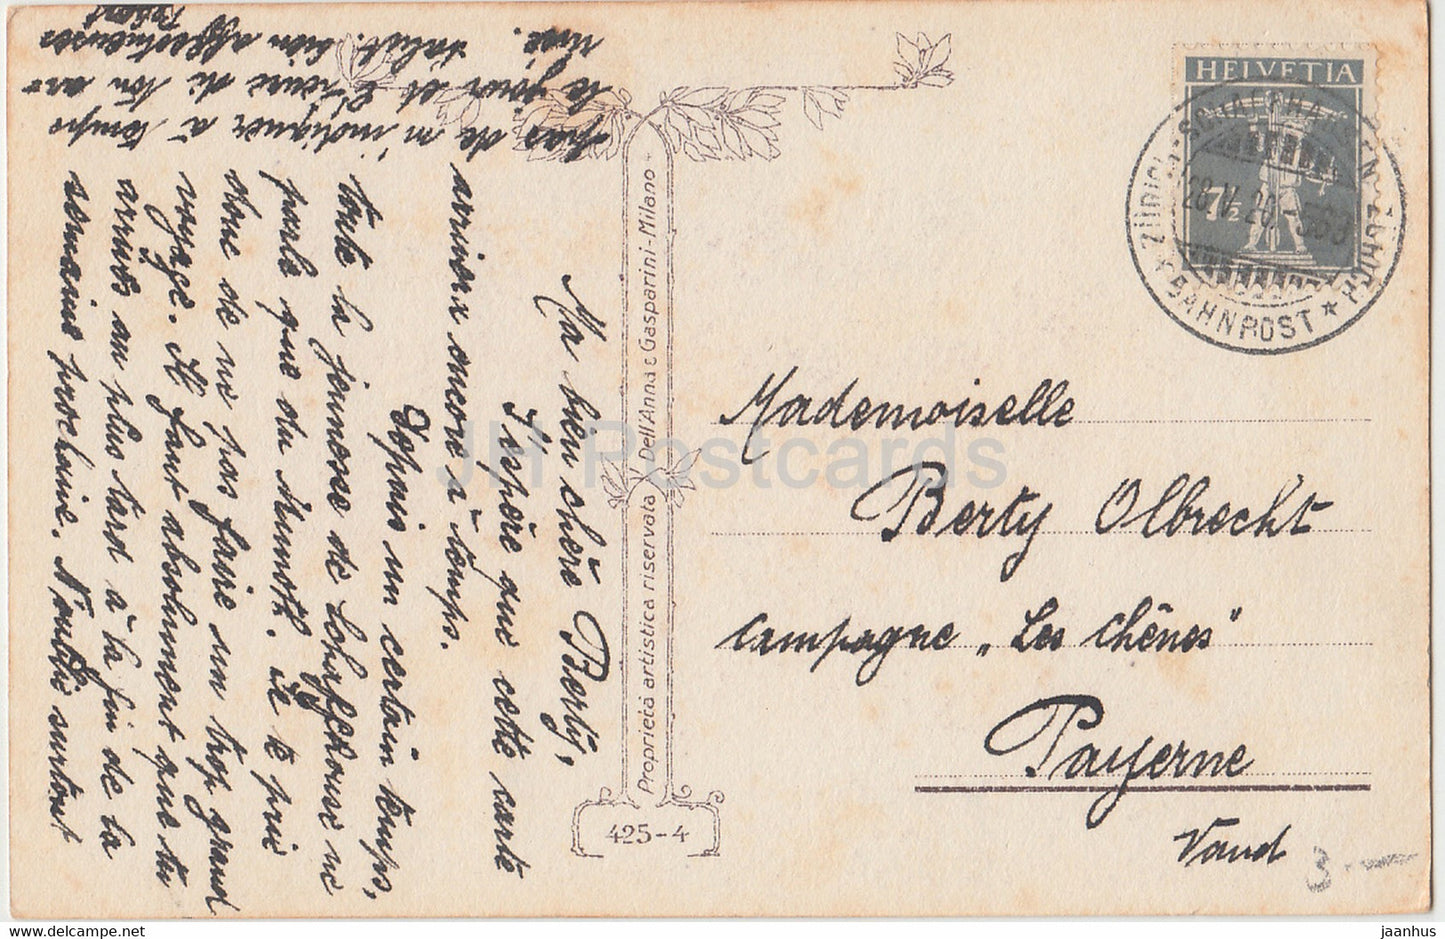 Ma bien chère Berty,
J'espère que cette carte
arrivera encore à temps.
Depuis un certain temps,
toute la jeunesse de ne
parle que du Je te prie
donc de ne pas faire un trop grand
voyage. Il faut absolument que tu
arrives au plus tard à la fin de la
semaine prochaine. N'oublie surtout
pas de m'indiquer à temps
le jour et l'heure de ton ar-
rivé. Salut. bien affectueuses
Robert
Proprietà artistica riservata Dell'Anna e Gasparini-Milano
425-4
HELVETIA
7½
ZÜRICH-SCHAFFHAUSEN-ZÜRICH
28.V.20.-563
BAHNPOST
Mademoiselle
Berty Olbrecht
campagne „Les Chênes"
Payerne
Vaud
3.—
JH Postcards
hipstamp.com
jaanhus